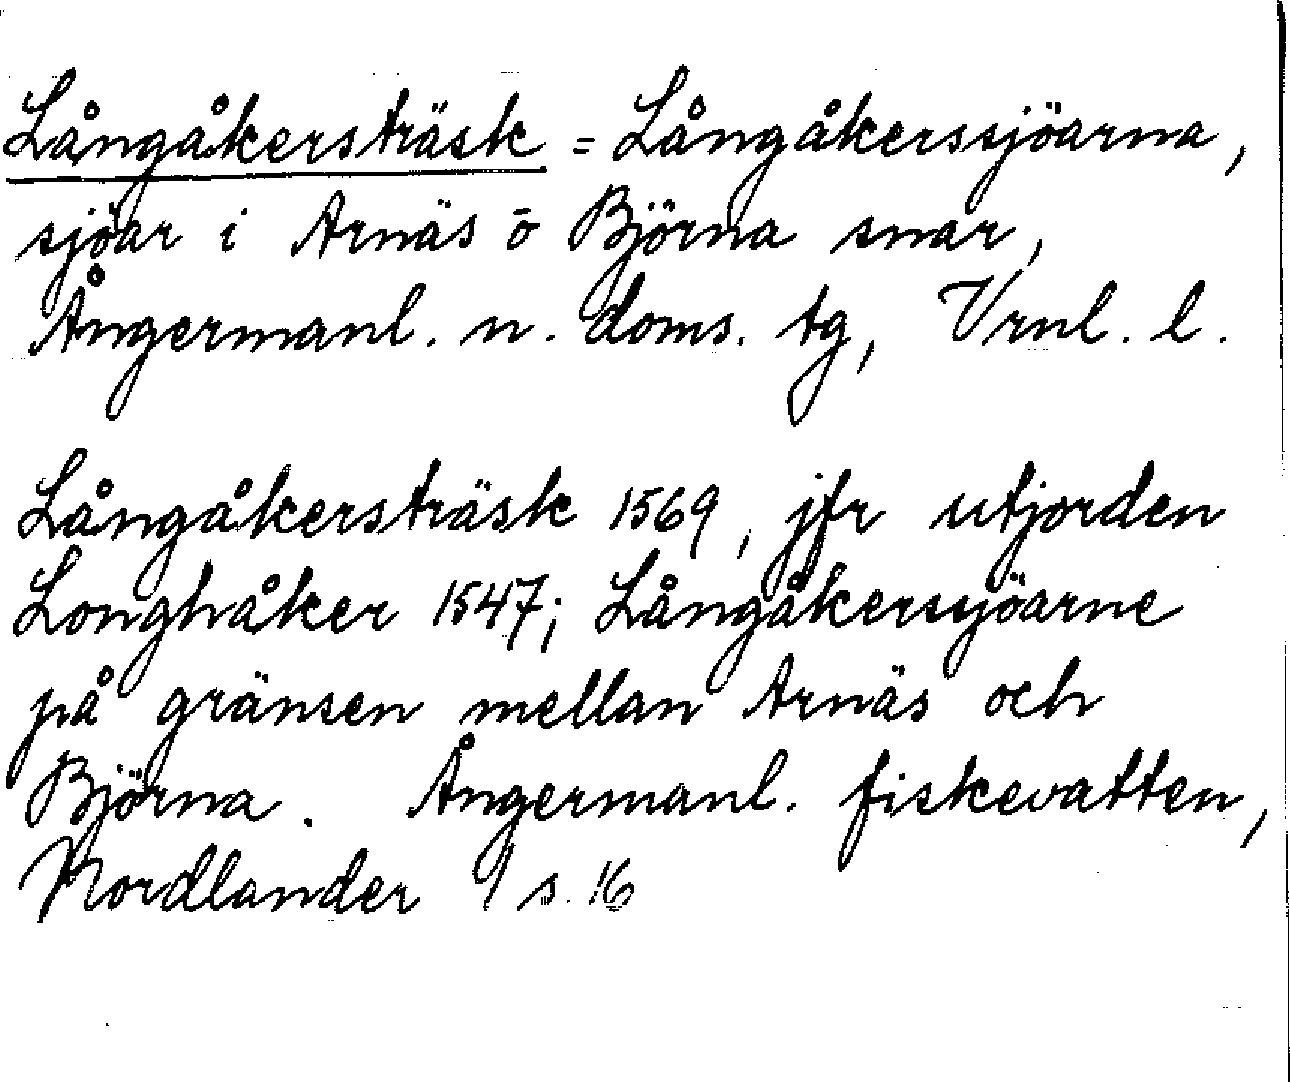 Långåkersträsk = Långåkerssjöarna,
sjöar i Arnäs o Björna snar,
Ångermanl. n. doms. tg, Vrnl. l.
Långåkersträsk 1569, jfr utjorden
Longhåker 1547; Långåkerssjöarne
på gränsen mellan Arnäs och
Björna. Ångermanl. fiskevatten,
Nordlander 9 s. 16